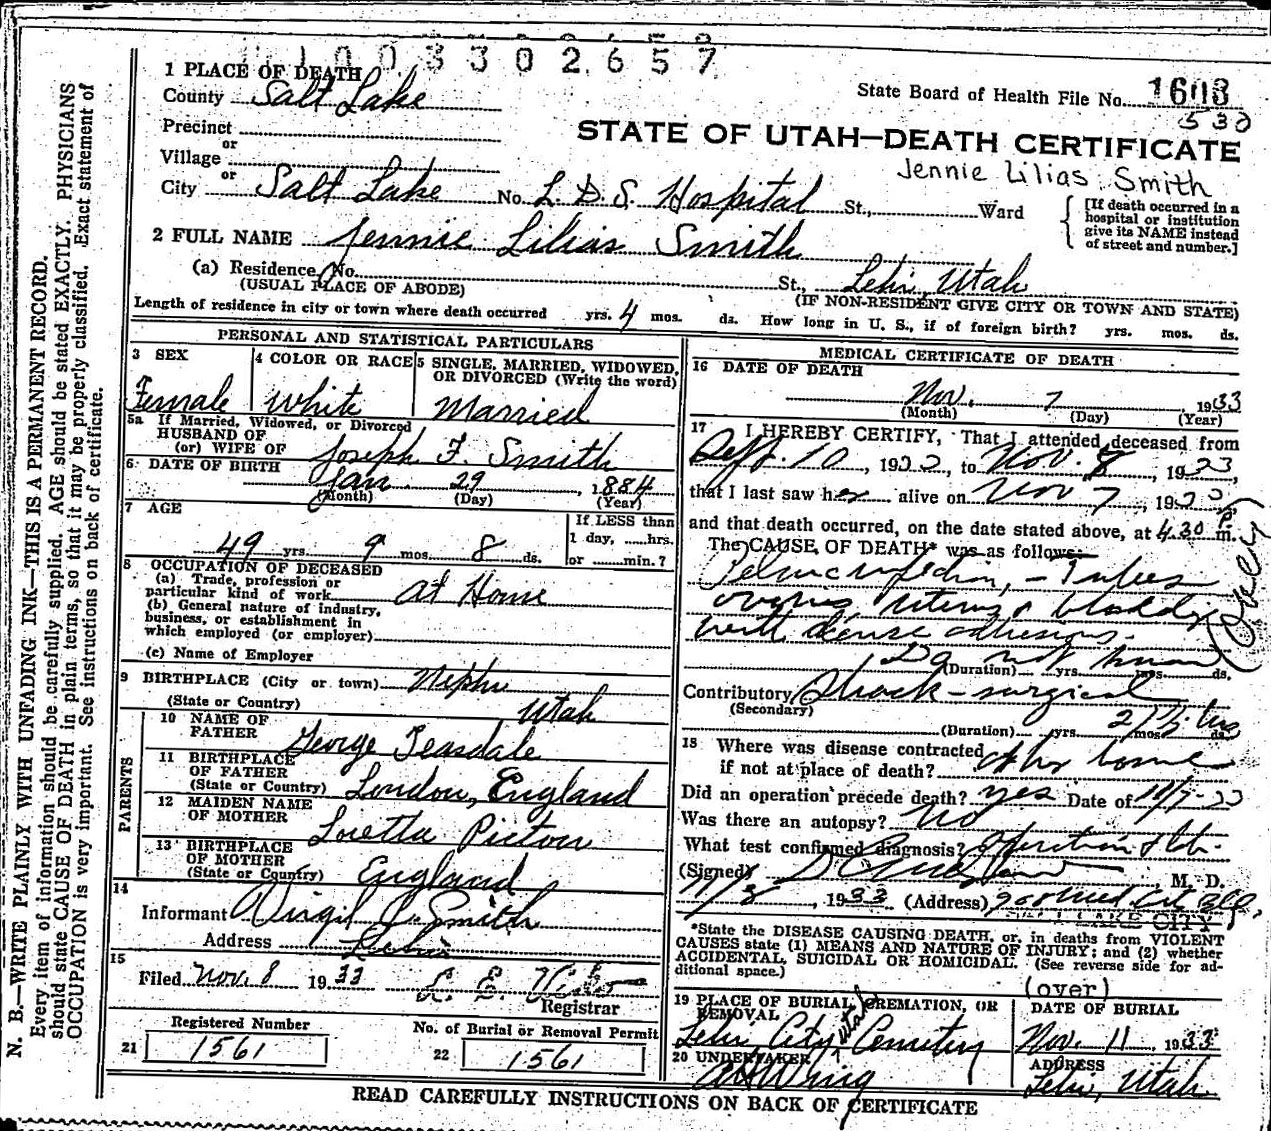 1003302657
1 PLACE OF DEATH
County Salt Lake
State Board of Health File No. 1603
530
Precinct
or
Village
or
City Salt Lake No. L. D. S. Hospital St., Ward
STATE OF UTAH—DEATH CERTIFICATE
Jennie Lilias Smith
[If death occurred in a
hospital or institution
give its NAME instead
of street and number.]
2 FULL NAME Jennie Lilias Smith
(a) Residence, No. St., Lehi, Utah
(USUAL PLACE OF ABODE) (IF NON-RESIDENT GIVE CITY OR TOWN AND STATE)
Length of residence in city or town where death occurred yrs. 4 mos. ds. How long in U. S., if of foreign birth? yrs. mos. ds.
PERSONAL AND STATISTICAL PARTICULARS
3 SEX 4 COLOR OR RACE 5 SINGLE, MARRIED, WIDOWED,
OR DIVORCED (Write the word)
Female White Married
5a If Married, Widowed, or Divorced
HUSBAND OF
(or) WIFE OF Joseph F. Smith
6 DATE OF BIRTH Jan 29, 1884
(Month) (Day) (Year)
7 AGE
If LESS than
1 day, hrs.
49 yrs. 9 mos. 8 ds. or min.?
8 OCCUPATION OF DECEASED
(a) Trade, profession or
particular kind of work At Home
(b) General nature of industry,
business, or establishment in
which employed (or employer)
(c) Name of Employer
9 BIRTHPLACE (City or town) Nephi
(State or Country) Utah
PARENTS
10 NAME OF
FATHER George Teasdale
11 BIRTHPLACE
OF FATHER
(State or Country) London, England
12 MAIDEN NAME
OF MOTHER Loretta Picton
13 BIRTHPLACE
OF MOTHER
(State or Country) England
14
Informant Virgil J. Smith
Address Lehi
15
Filed Nov. 8 1933 L. E.
Registrar
Registered Number No. of Burial or Removal Permit
21 1561 22 1561
MEDICAL CERTIFICATE OF DEATH
16 DATE OF DEATH
Nov. 7 1933
(Month) (Day) (Year)
17 I HEREBY CERTIFY, That I attended deceased from
Sept. 10, 1933, to Nov. 8, 1933,
that I last saw her alive on Nov 7, 1933
and that death occurred, on the date stated above, at 4.30 P. m.
The CAUSE OF DEATH* was as follows:
Pelvic infection, — Tubes
ovaries, uterus & bladder
with dense adhesions.
(over)
Do not know
(Duration) yrs. mos. ds.
Contributory Shock - surgical
(Secondary)
(Duration) yrs. mos. ds.
18 Where was disease contracted
if not at place of death? At her home
Did an operation precede death? yes Date of 11/7-33
Was there an autopsy? No
What test confirmed diagnosis? Operation & Lab.
(Signed) M. D.
11/8, 1933 (Address)
SALT LAKE CITY
*State the DISEASE CAUSING DEATH, or, in deaths from VIOLENT
CAUSES state (1) MEANS AND NATURE OF INJURY; and (2) whether
ACCIDENTAL, SUICIDAL OR HOMICIDAL. (See reverse side for ad-
ditional space.)
(over)
19 PLACE OF BURIAL, CREMATION, OR
REMOVAL DATE OF BURIAL
Lehi City Utah Cemetery Nov. 11 1933
20 UNDERTAKER ADDRESS
A H Wing Lehi, Utah
READ CAREFULLY INSTRUCTIONS ON BACK OF CERTIFICATE
N. B.—WRITE PLAINLY WITH UNFADING INK—THIS IS A PERMANENT RECORD.
Every item of information should be carefully supplied. AGE should be stated EXACTLY. PHYSICIANS
should state CAUSE OF DEATH in plain terms, so that it may be properly classified. Exact statement of
OCCUPATION is very important. See instructions on back of certificate.